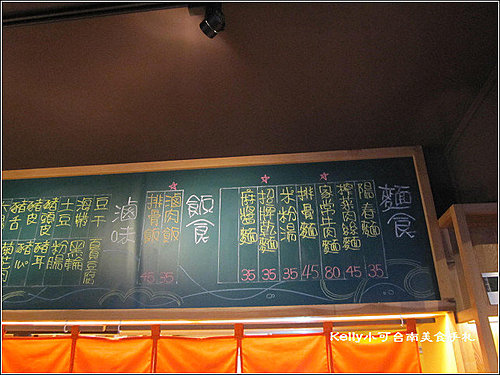 麵食
陽春麵 35.
榨菜肉絲麵 45.
80.
排骨麵 45
米粉湯 35.
招牌乾麵 35.
麻醬麵 35
飯食
滷肉飯 35.
排骨飯 45
滷味
豆干
海帶
土豆
豬頭皮
豬皮
豬舌
百頁豆腐
黑輪
粉腸
豬耳
豬心
Kelly小可台南美食手札